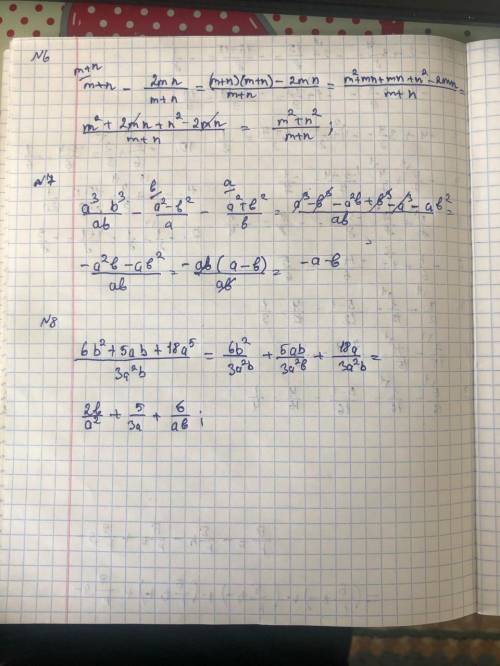 №6
m+n
m+n - 2mn/m+n = (m+n)(m+n) - 2mn/m+n = m²+mn+mn+n²-2mn/m+n =
m² + 2mn + n² - 2mn/m+n = m²+n²/m+n ;
№7
в а
a³-b³/ab - a²-в²/a - a²+в²/в = a³-b³-a²b+b³-a³-ab²/ab =
-a²b-ab²/ab = -ab(a-b)/ab = -a-b
№8
6b²+5ab+18a⁵/3a²b = 6b²/3a²b + 5ab/3a²b + 18a/3a²b =
2b/a² + 5/3a + 6/ab ;